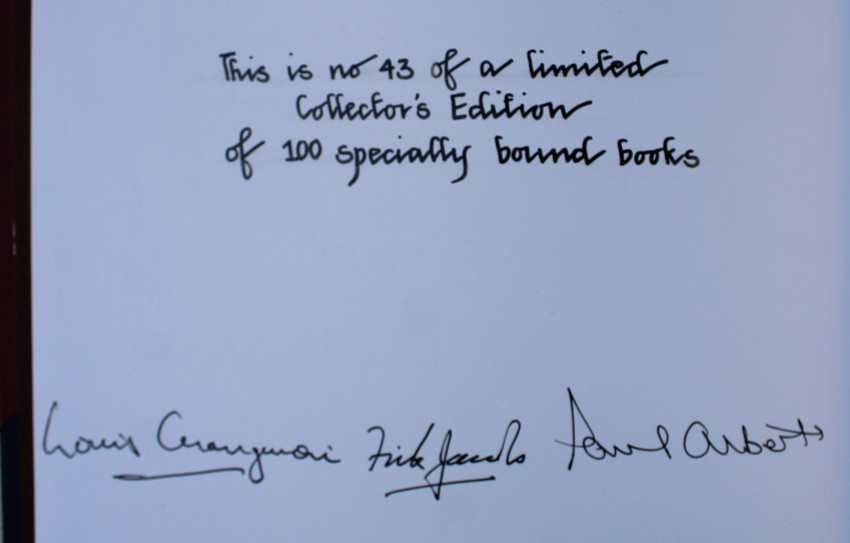 This is no 43 of a limited
Collector's Edition
of 100 specially bound books
Louis Jacobs Paul